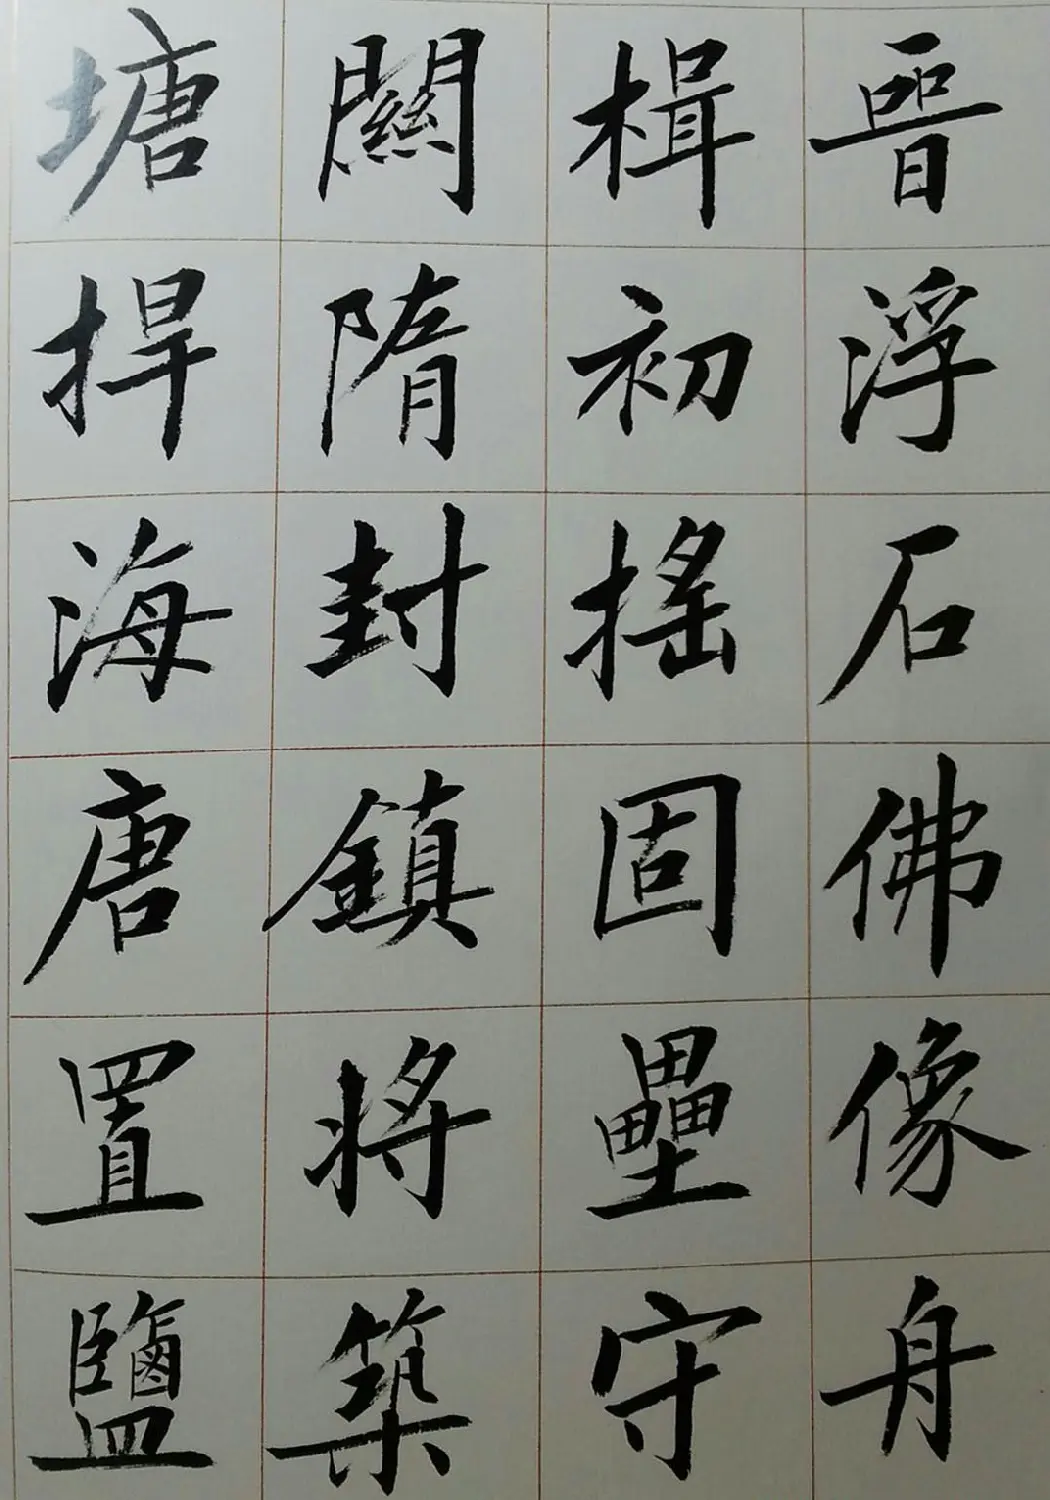 晉浮石佛像舟
楫初搖固壘守
關隋封鎮將築
塘捍海唐置鹽